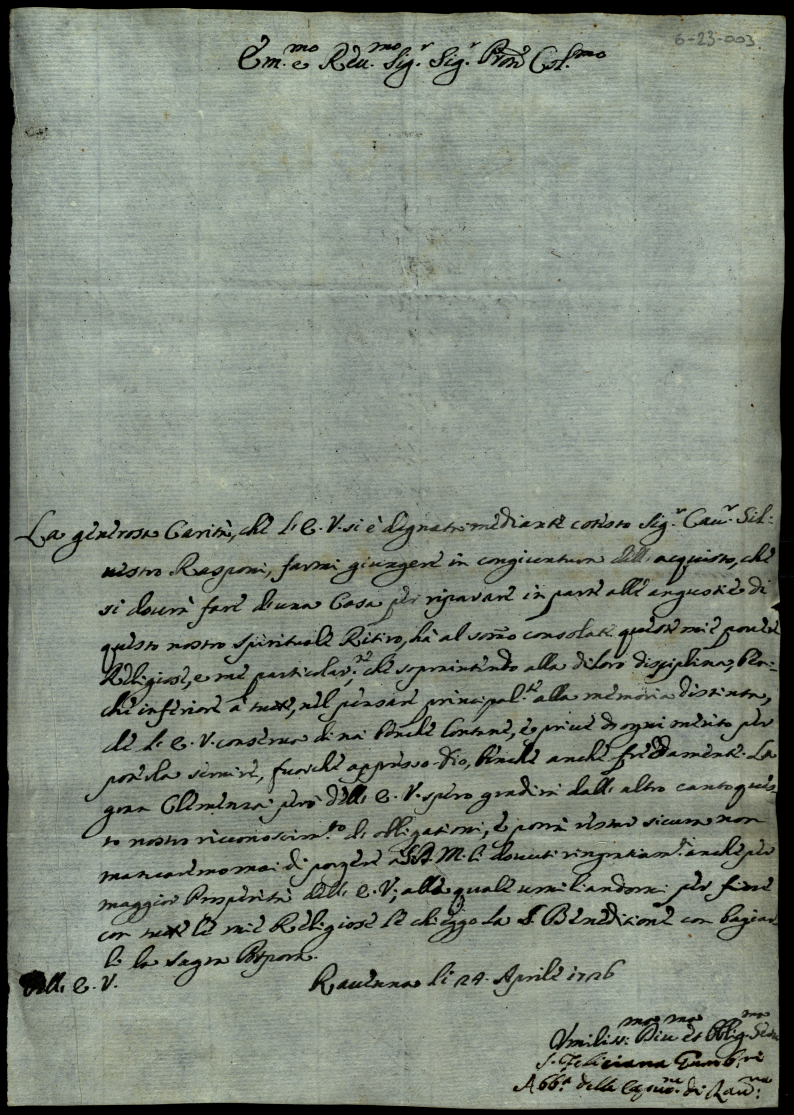 6-23-003
Em.mo e Rev.mo Sig.r Sig.r Pron Col.mo
La generosa Carità, che l'E.V. si è degnata mediante cotesto Sig.r Cav.r Sil-
vestro Rasponi, farmi giungere in congiuntura dell'acquisto, che
si dovrà fare di una Casa per riparare in parte alle angustie di
questo nostro spirituale Ritiro, hà al somo consolate queste mie povere
Religiose, e me particolar.te che soprintendo alla di loro disciplina, Ben-
che inferiore à tutte, nel pensare principal.te alla memoria distinta,
che l'E.V. conserva di noi benche lontane, e prive di ogni merito per
poterla servire, fuorche appresso Dio, benche anche freddamente. La
gran Clemenza però dell'E.V. spero gradirà dall'altro canto ques-
to nostro riconoscim.to di obligationi, e potrà restar sicura non
mancaremo mai di porgere à S.D.M. li dovuti ringratiam.ti anche per
maggior Prosperità dell'E.V., alla quale umiliandomi per fine
con tutte le mie Religiose le chieggo la S. Beneditione con bagiar-
li la Sagra Porpora.
Dell'E.V. Ravenna li 24. Aprile 1726
Umiliss.ma Div.ma et Obblig.ma Serva
S. Feliciana Gamb.ri
Abb.a delle Capuc.ne di Rav.na